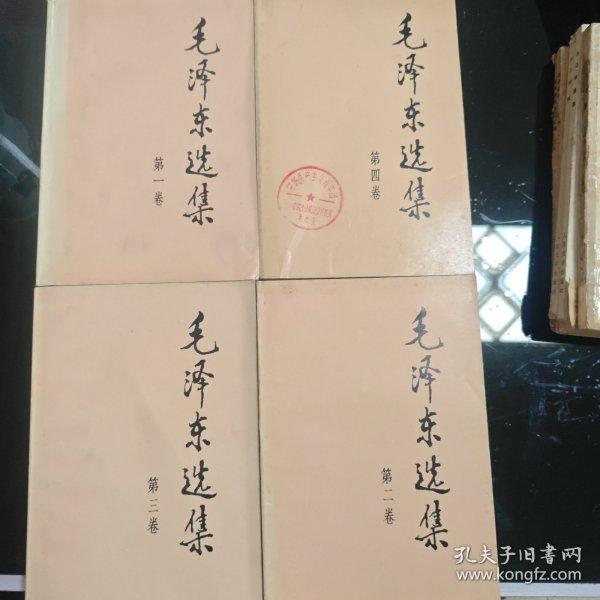 毛泽东选集
第一卷
毛泽东选集
第四卷
毛泽东选集
第三卷
毛泽东选集
第二卷
孔夫子旧书网
www.kongfz.com